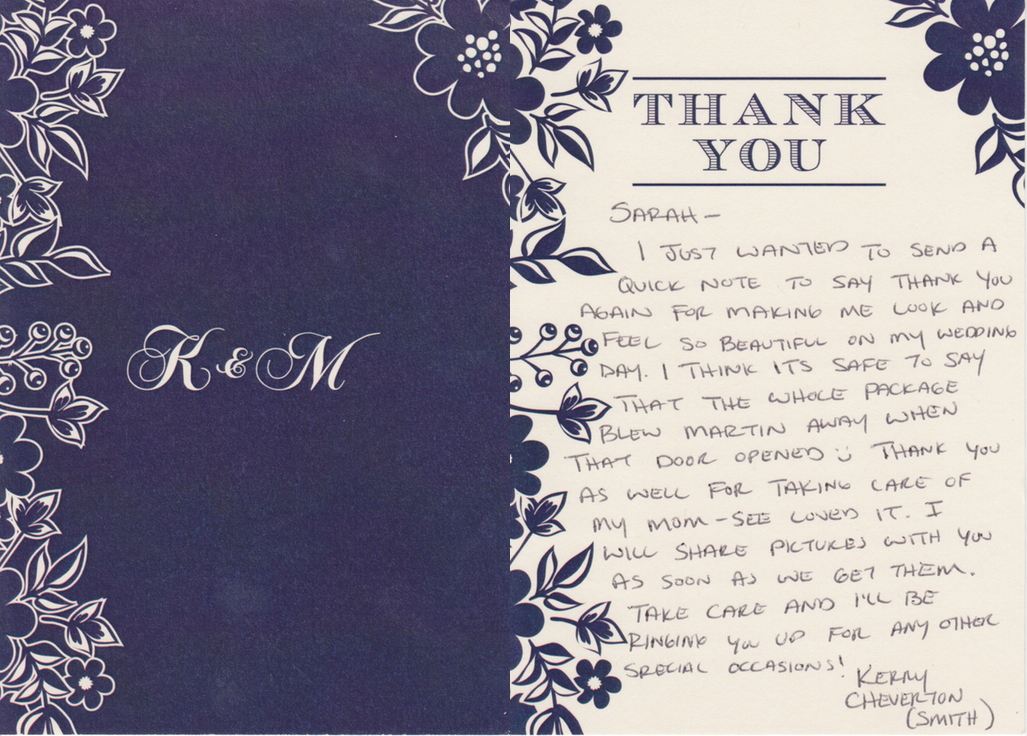 K & M
THANK
YOU
SARAH—
I JUST WANTED TO SEND A
QUICK NOTE TO SAY THANK YOU
AGAIN FOR MAKING ME LOOK AND
FEEL SO BEAUTIFUL ON MY WEDDING
DAY. I THINK ITS SAFE TO SAY
THAT THE WHOLE PACKAGE
BLEW MARTIN AWAY WHEN
THAT DOOR OPENED Ü THANK YOU
AS WELL FOR TAKING CARE OF
MY MOM-SEE LOVED IT. I
WILL SHARE PICTURES WITH YOU
AS SOON AS WE GET THEM.
TAKE CARE AND I'LL BE
RINGING YOU UP FOR ANY OTHER
SPECIAL OCCASIONS!
KERRY
CHEVERTON
(SMITH)